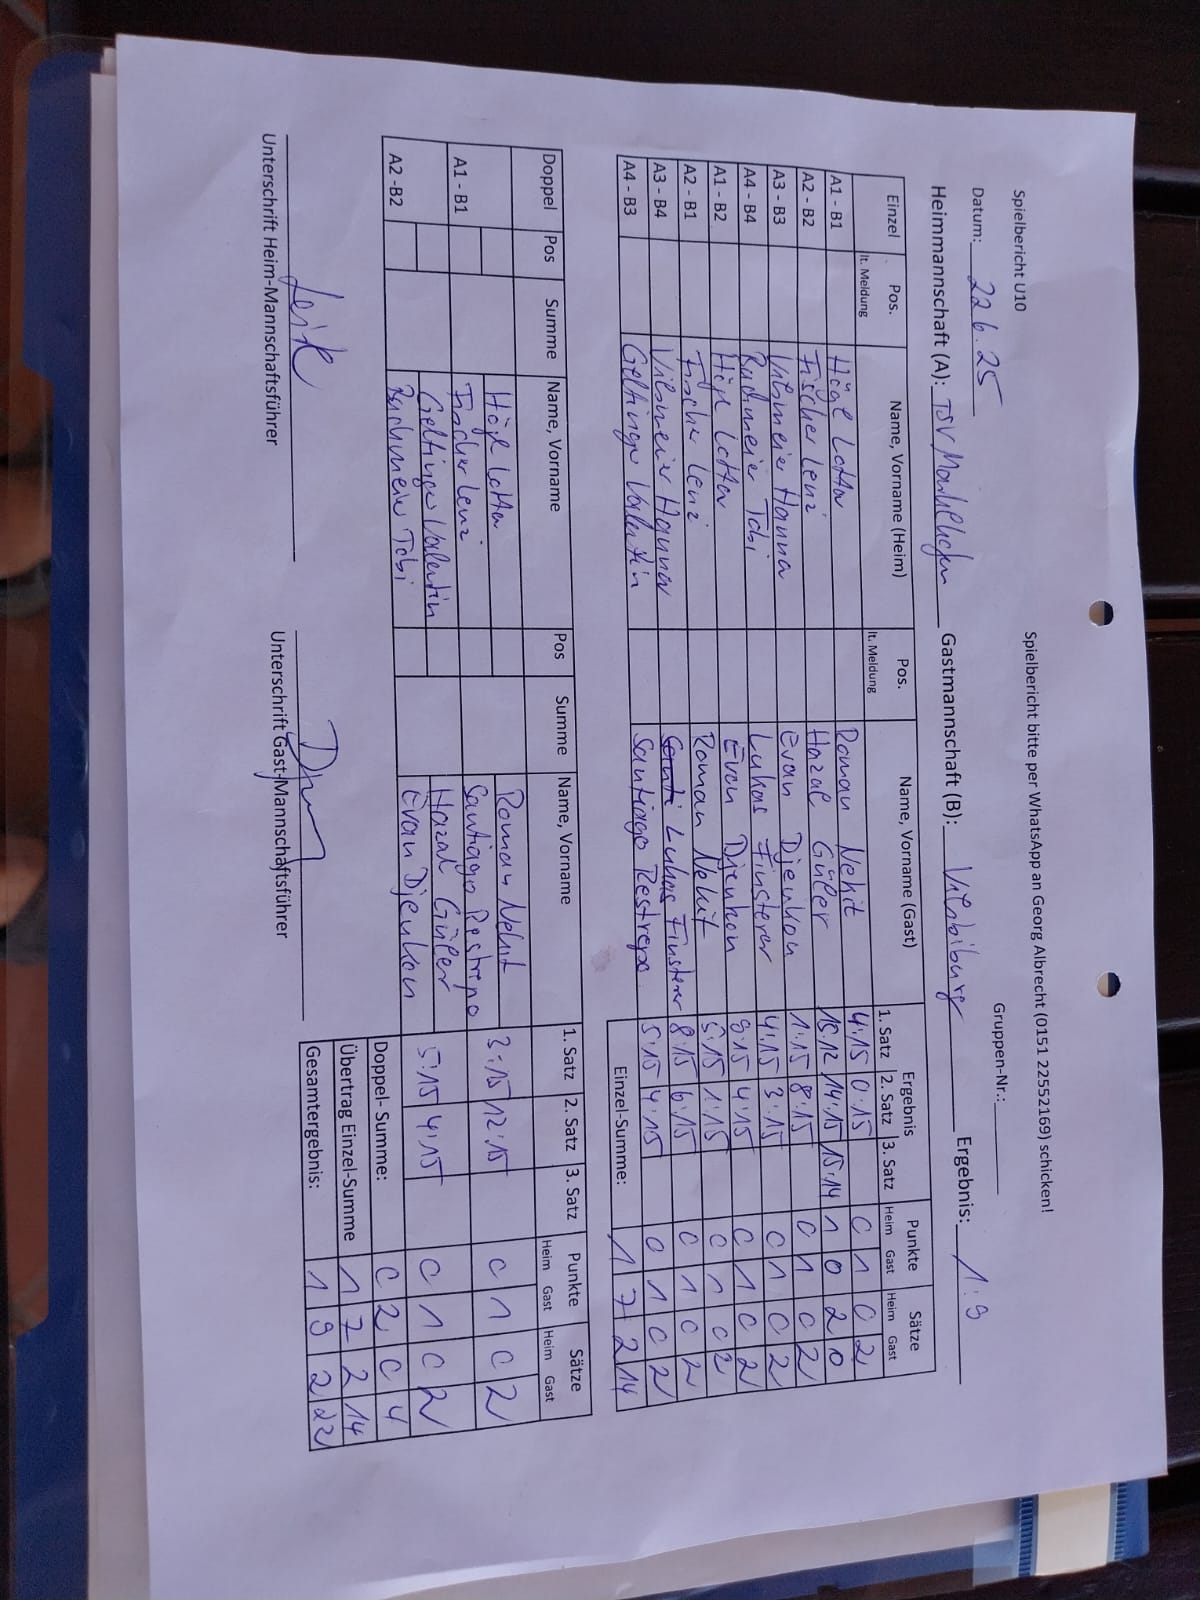 Spielbericht U10 Spielbericht bitte per WhatsApp an Georg Albrecht (0151 22552169) schicken!
Datum: 22.6.25 Gruppen-Nr.:
Heimmannschaft (A): TSV Gastmannschaft (B): Vilsbiburg Ergebnis: 1:9
Einzel Pos. Name, Vorname (Heim) Pos. Name, Vorname (Gast) Ergebnis Punkte Sätze
lt. Meldung lt. Meldung 1. Satz 2. Satz 3. Satz Heim Gast Heim Gast
A1 - B1 Högl Lotta Roman Nekit 4:15 0:15 0 1 0 2
A2 - B2 Fischer Leni Hazal Güler 15:12 14:15 15:14 1 0 2 0
A3 - B3 Vilsmeier Hanna Evan Djenkon 1:15 8:15 0 1 0 2
A4 - B4 Bachmeier Tobi Lukas Finsterer 4:15 3:15 0 1 0 2
A1 - B2 Högl Lotta Evan Djenkon 9:15 4:15 0 1 0 2
A2 - B1 Fischer Leni Roman Nekit 5:15 1:15 0 1 0 2
A3 - B4 Vilsmeier Hanna Lukas Finsterer 8:15 6:15 0 1 0 2
A4 - B3 Geltinger Valentin Santiago Restrepo 5:15 4:15 0 1 0 2
Einzel-Summe: 1 7 2 14
Doppel Pos Summe Name, Vorname Pos Summe Name, Vorname 1. Satz 2. Satz 3. Satz Punkte Sätze
Heim Gast Heim Gast
Högl Lotta Roman Nekit
A1 - B1 Fischer Leni Santiago Restrepo 3:15 12:15 0 1 0 2
Geltinger Valentin Hazal Güler
A2 -B2 Bachmeier Tobi Evan Djenkon 5:15 4:15 0 1 0 2
Doppel- Summe: 0 2 0 4
Übertrag Einzel-Summe 1 7 2 14
Gesamtergebnis: 1 9 2 22
Unterschrift Heim-Mannschaftsführer Unterschrift Gast-Mannschaftsführer